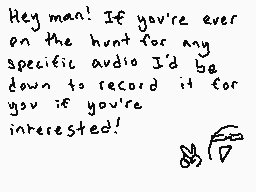 Hey man! If you're ever
on the hunt for any
specific audio I'd be
down to record it for
you if you're
interested!